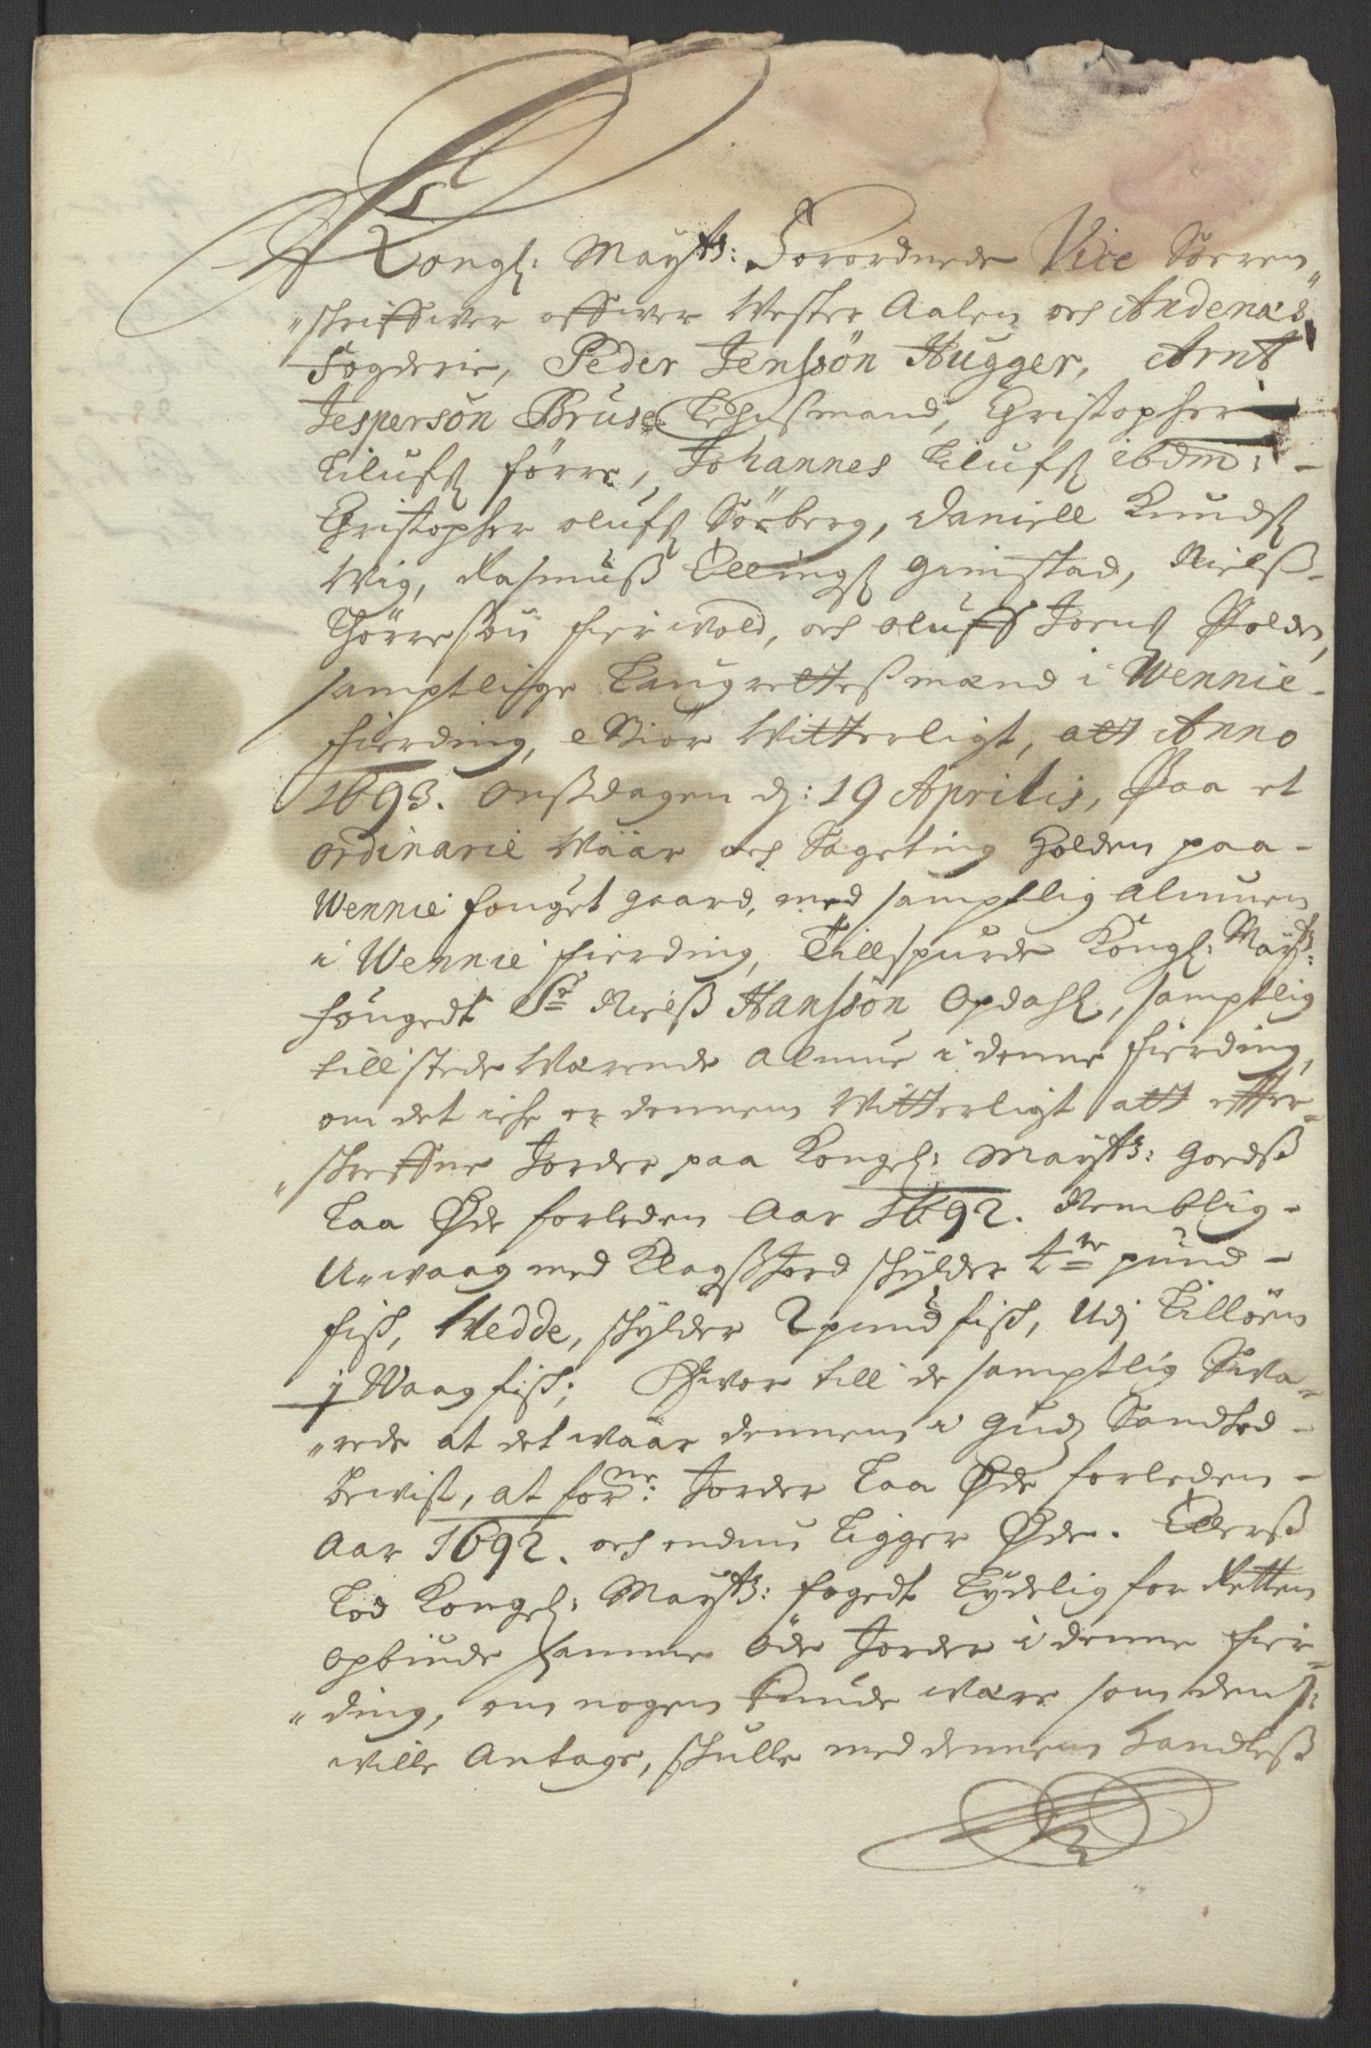 Kongl: Mayts: Forordnede Vice Soeren„
„schriffwer offwer Wester Aalen och Andenæs
Fogderie, Peder Jenssøn Hugger, Arnt
Jespersøn Bruse Lehnsmand, Christopher
Eilufs: förre, Johannes Eilufs: ibdm: -
Christopher olufs: Söeberg, Daniell Knuds:
Wig, Rasmuss Ellings: Gimstad, Nielss-
Thörresøn fierwold, och oluff Joens: Polden,
samptlige Laugrettessmænd i Wennie-
fierding, Giör Witterligt, att Anno
1693. Onssdagen d: 19 Aprilis, Paa et
ordinarie Waar och Sageting Holden paa-
Wennie fouget gaard, med samptlig Almuen
i Wennie fierding, Tillspurde Kongl: Mayts:
fougedt Sr Nielss Hanssøn Opdahl, samptlig
tillstede Wærende Almue i denne fierding,
om det iche er dennem Witterligt att effter-
„schreffne Jorder paa Kongel: Mayts: Goedss
Laa Øde forleden Aar 1692. Nemblig-
Urwaag med Klagssjord schylder pund-
fisch, Wedde, schylder 2 pund fisch, Udj Tilløen
j Waag fisch; Hwor till de samptlig Swa-
„rede at det waar dennem i Guds Sandhed-
bewist, at forne: Jorder Laa Øde forleden-
Aar 1692. och endnu Ligger Øde. Ellerss
Lod Kongel: Mayts: fogedt Lydelig for Retten
opbiude samme öde Jorder i denne fier-
„ding, om nogen kunde wære som dem
wille Antage, schulle med dennem handless